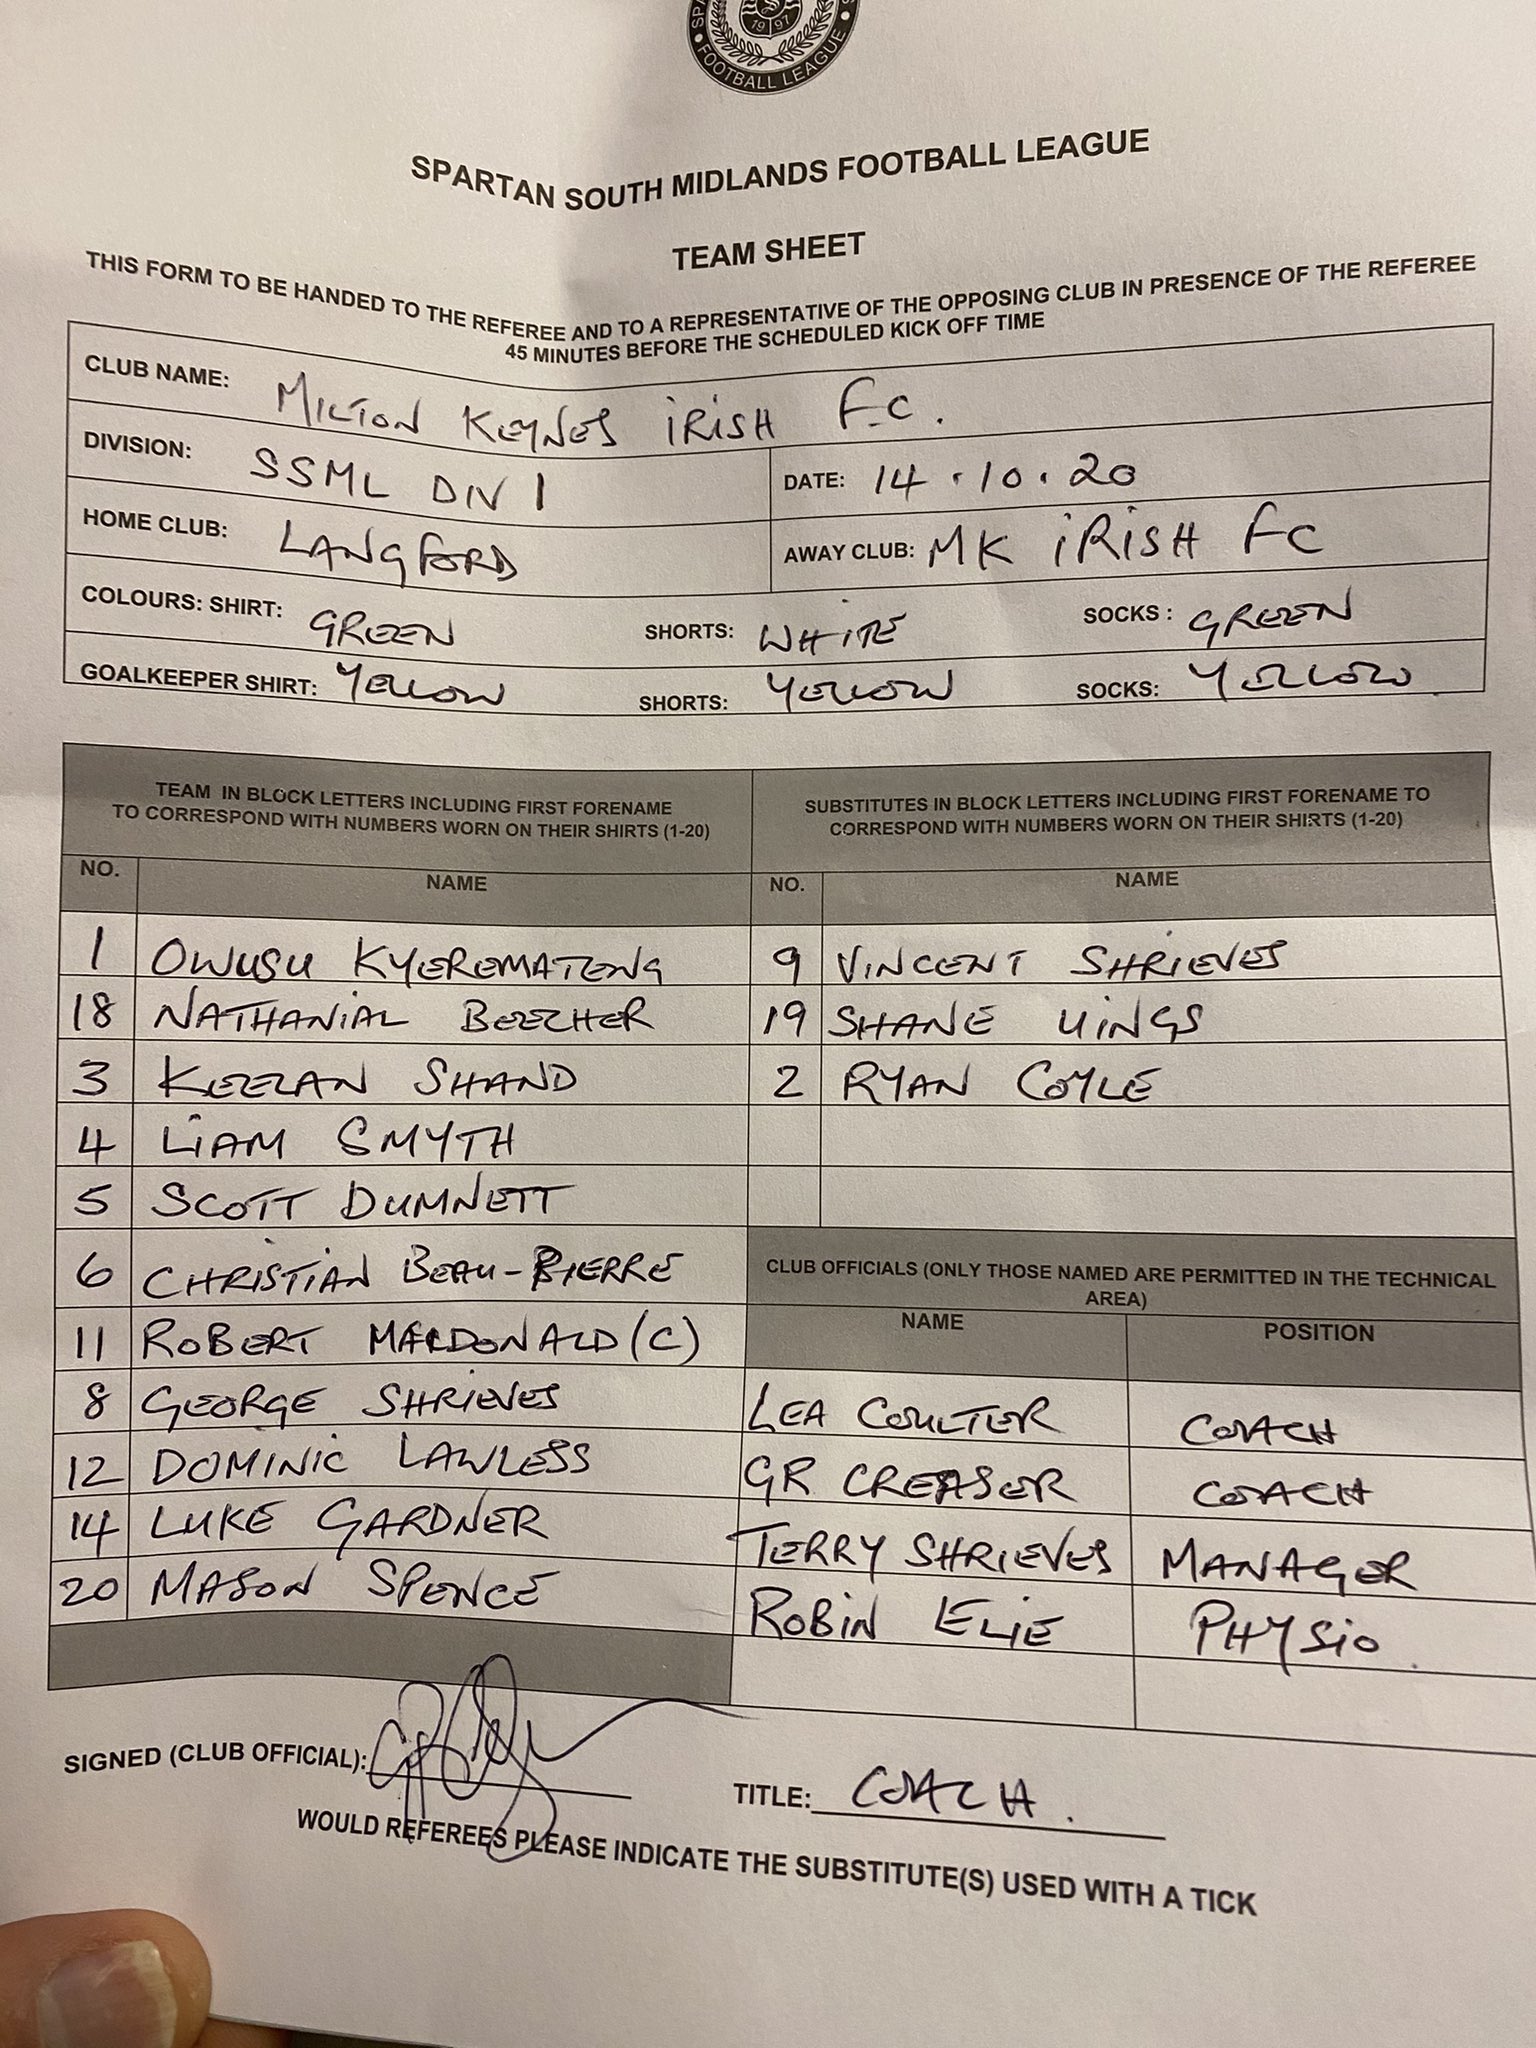 1997
FOOTBALL LEAGUE
SPARTAN SOUTH MIDLANDS FOOTBALL LEAGUE
TEAM SHEET
THIS FORM TO BE HANDED TO THE REFEREE AND TO A REPRESENTATIVE OF THE OPPOSING CLUB IN PRESENCE OF THE REFEREE
45 MINUTES BEFORE THE SCHEDULED KICK OFF TIME
CLUB NAME: MILTON KEYNES IRISH F.C.
DIVISION: SSML DIV 1 DATE: 14.10.20
HOME CLUB: LANGFORD AWAY CLUB: MK IRISH FC
COLOURS: SHIRT: GREEN SHORTS: WHITE SOCKS: GREEN
GOALKEEPER SHIRT: YELLOW SHORTS: YELLOW SOCKS: YELLOW
TEAM IN BLOCK LETTERS INCLUDING FIRST FORENAME
TO CORRESPOND WITH NUMBERS WORN ON THEIR SHIRTS (1-20)
NO. NAME
1 OWUSU KYEREMATENG
18 NATHANIAL BEECHER
3 KEELAN SHAND
4 LIAM SMYTH
5 SCOTT DUMNETT
6 CHRISTIAN BEAU-PIERRE
11 ROBERT MACDONALD (C)
8 GEORGE SHRIEVES
12 DOMINIC LAWLESS
14 LUKE GARDNER
20 MASON SPENCE
SUBSTITUTES IN BLOCK LETTERS INCLUDING FIRST FORENAME TO
CORRESPOND WITH NUMBERS WORN ON THEIR SHIRTS (1-20)
NO. NAME
9 VINCENT SHRIEVES
19 SHANE
2 RYAN COYLE
CLUB OFFICIALS (ONLY THOSE NAMED ARE PERMITTED IN THE TECHNICAL
AREA)
NAME POSITION
LEA COULTER COACH
GR CREASER COACH
TERRY SHRIEVES MANAGER
ROBIN ELIE PHYSIO
SIGNED (CLUB OFFICIAL): TITLE: COACH.
WOULD REFEREES PLEASE INDICATE THE SUBSTITUTE(S) USED WITH A TICK